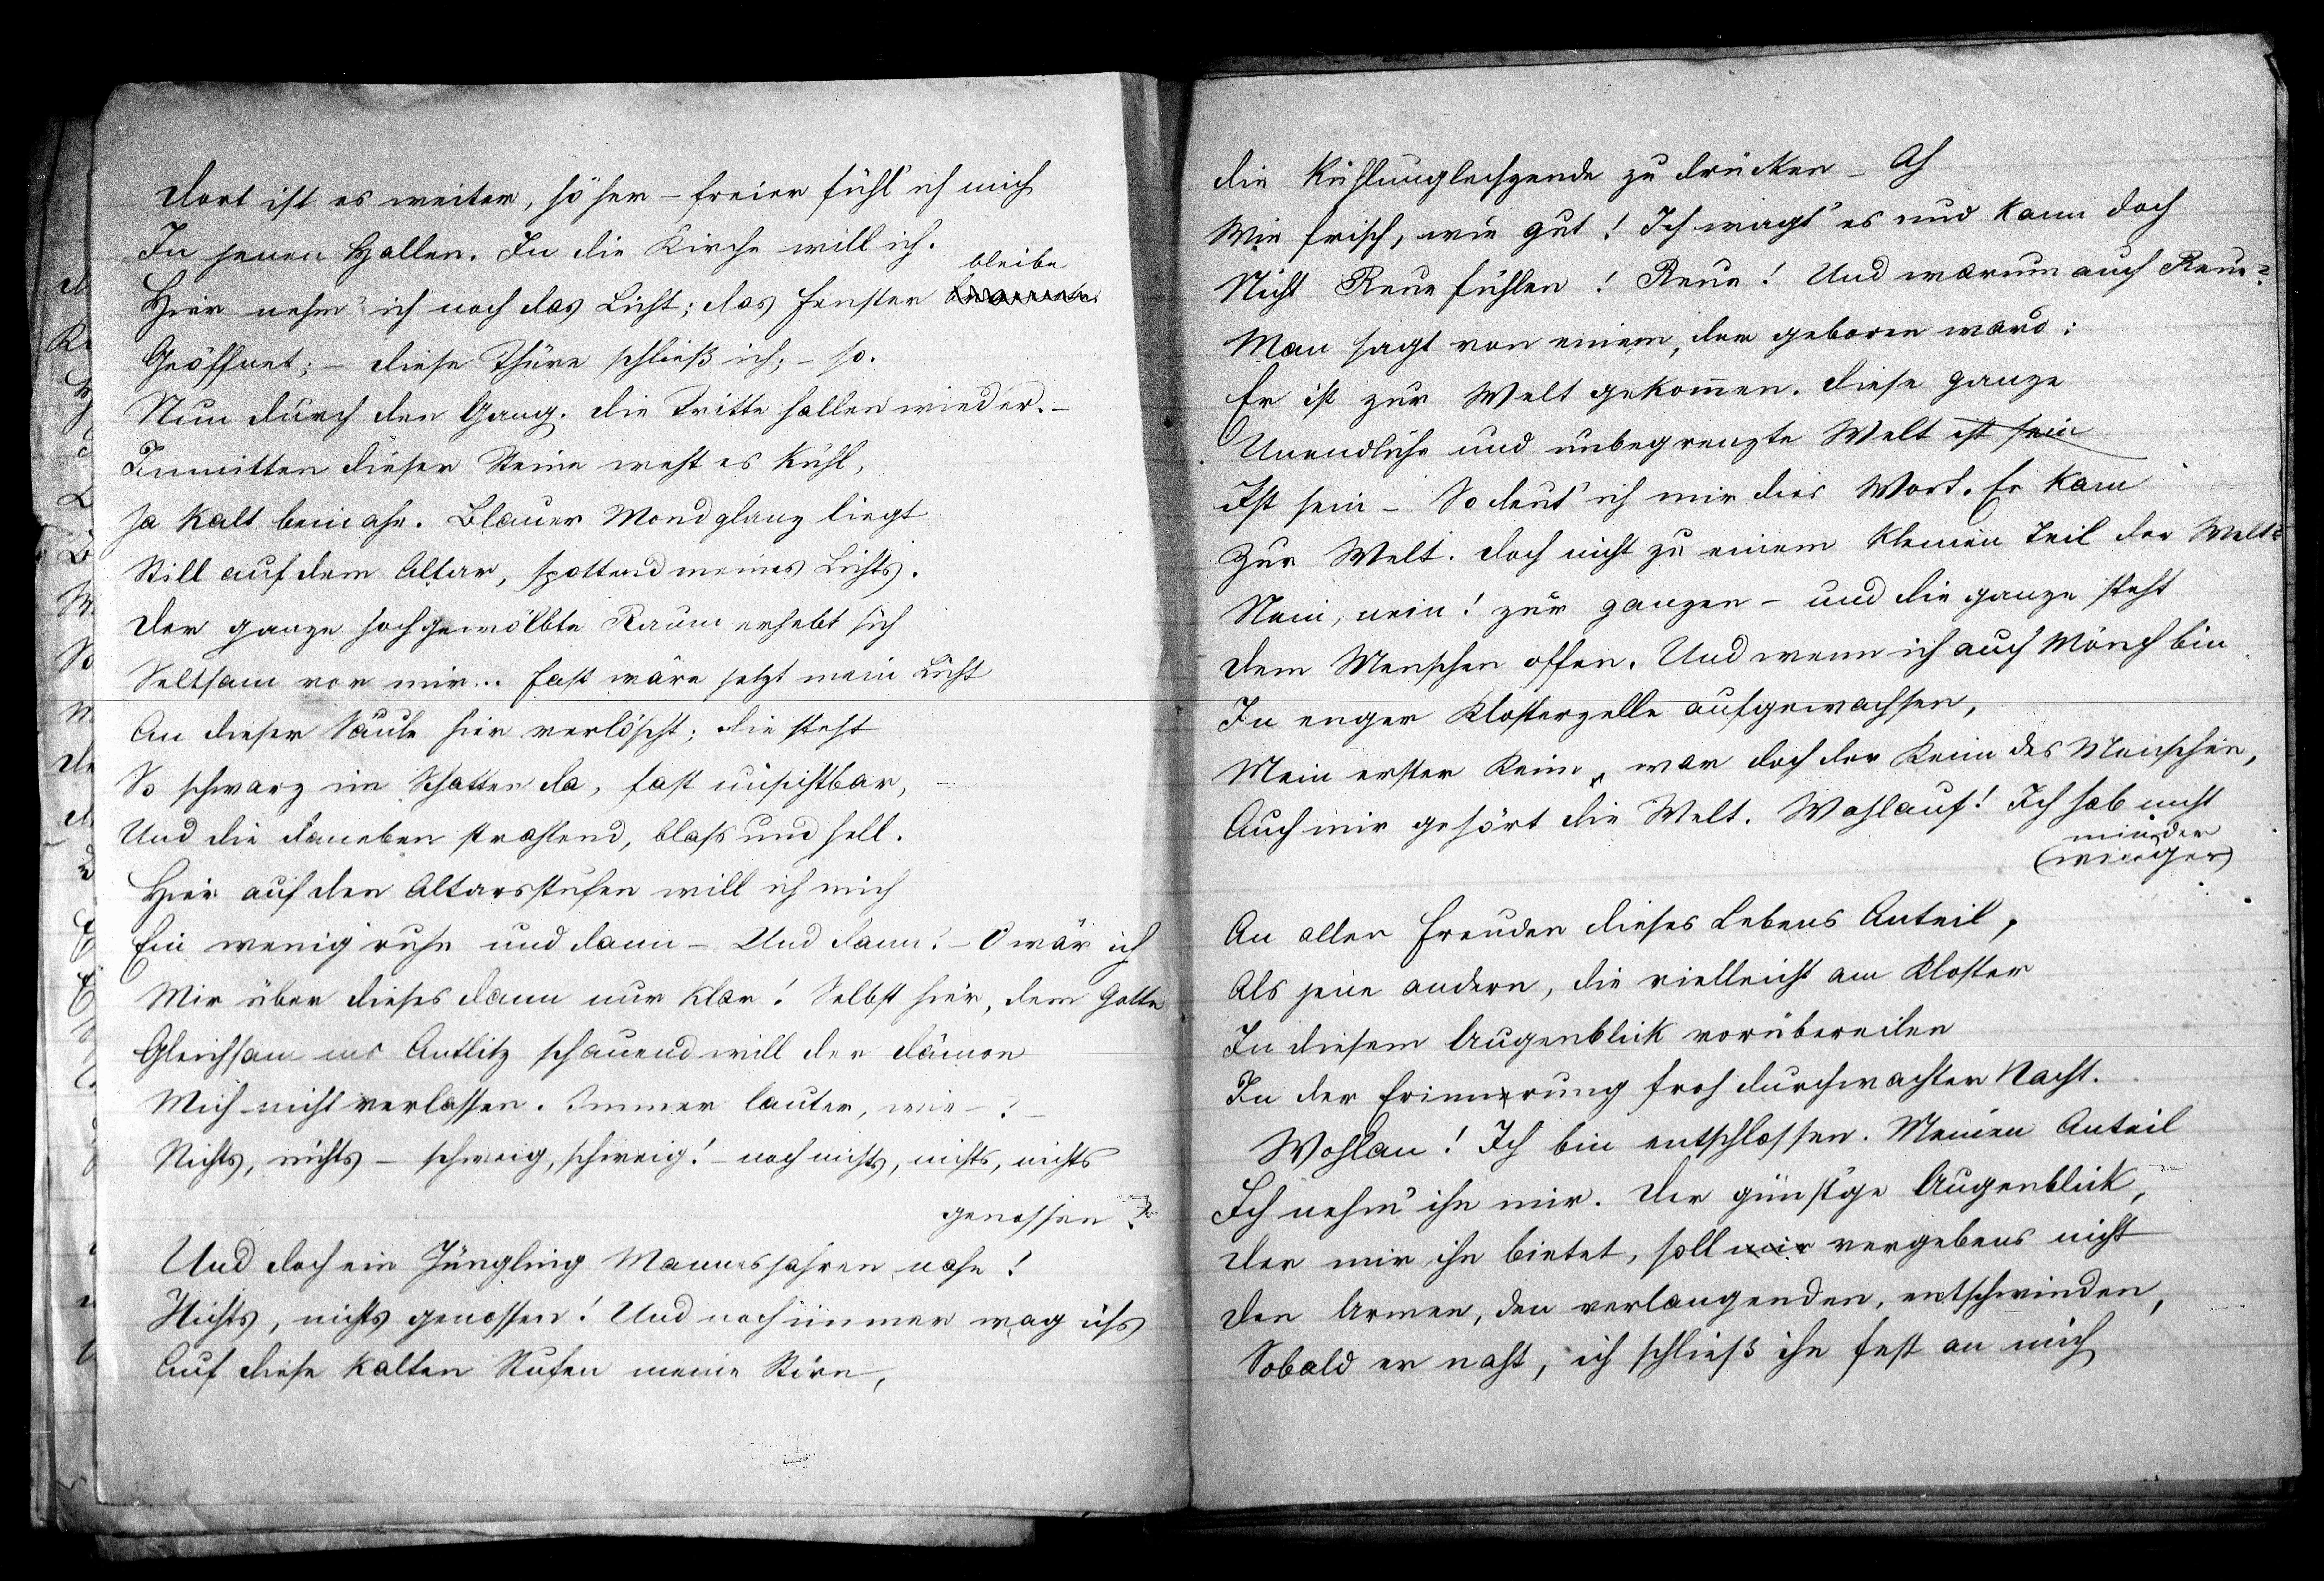 Dort ist es weiter, höher – freier fühl' ich mich
In jenen Hallen. In die Kirche will ich.
bleibe
Hier nehm' ich noch das Licht; das Fenster
Geöffnet; – diese Thüre schließ ich; – so.
Nun durch den Gang. Die Tritte hallen wieder. –
Inmitten dieser Steine weht es kühl,
Ja kalt beinahe. Blauer Mondglanz liegt
Still auf dem Altar, spottend meines Lichts.
Der ganze hochgewölbte Raum erhebt sich
Seltsam vor mir... Fast wäre jetzt mein Licht
An dieser Säule hier verlöscht; die steht
So schwarz im Schatten da, fast unsichtbar,
Und die daneben strahlend, blass und hell.
Hier auf den Altarsstufen will ich mich
Ein wenig ruhn und dann – Und dann? – O wär ich
Mir über dieses dann nur klar! Selbst hier, dem Gotte
Gleichsam ins Antlitz schauend will der Dämon
Mich nicht verlassen. Immer lauter, wie – ? –
Nichts, nichts – schweig, schweig! – noch nichts, nichts, nichts
genossen?
Und doch ein Jüngling Mannesjahren nahe!
Nichts, nichts genossen! Und noch immer wag ichs
Auf diese kalten Stufen meine Stirn,
Die Kühlunglechzende zu drücken – Ah
Wie frisch, wie gut! Ich wagt' es und kann doch
Nicht Reue fühlen! Reue! Und warum auch Reue?
Man sagt von einem, der geboren ward:
Er ist zur Welt gekom̅en. Diese ganze
Unendliche und unbegrenzte Welt ist sein
Ist sein – So deut' ich mir dies Wort. Er kam
Zur Welt. Doch nicht zu einem kleinen Teil der Welt?
Nein, nein! zur ganzen – und die ganze steht
Dem Menschen offen. Und wenn ich auch Mönch bin
In enger Klosterzelle aufgewachsen,
Mein erster Keim, war doch der Keim des Menschen,
Auch mir gehört die Welt. Wohlauf! Ich hab nicht
minder
(weniger)
An allen Freuden dieses Lebens Anteil,
Als jene andern, die vielleicht am Kloster
In diesem Augenblick vorübereilen
In der Erinnerung froh durchwachter Nacht.
Wohlan! Ich bin entschlossen. Meinen Anteil
Ich nehm' ihn mir. Der günst'ge Augenblick,
Der mir ihn bietet, soll mir vergebens nicht
Den Armen, den verlangenden, entschwinden,
Sobald er naht, ich schließ ihn fest an mich